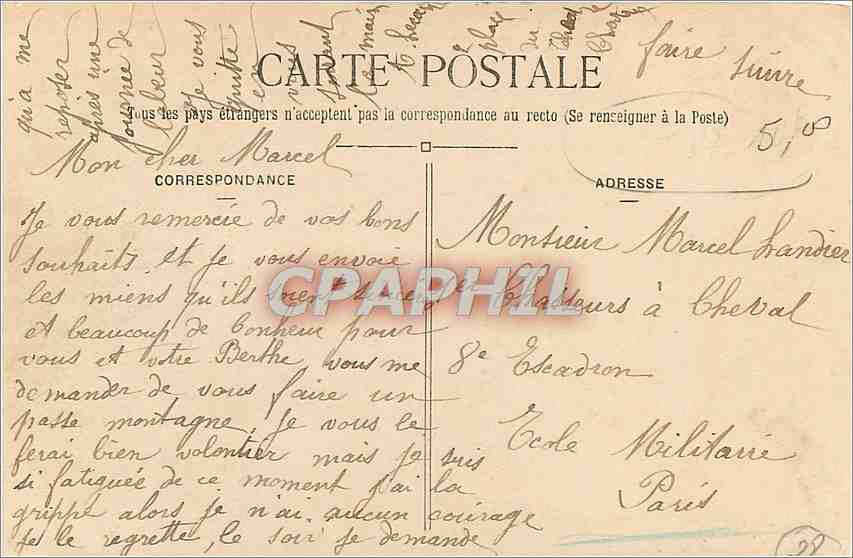 CARTE POSTALE
Tous les pays étrangers n'acceptent pas la correspondance au recto (Se renseigner à la Poste)
CORRESPONDANCE
Mon cher Marcel
Je vous remercie de vos bons
souhaits, et je vous envoie
les miens qu'ils soient sincere
et beaucoup de bonheur pour
vous et votre Berthe vous me
demander de vous faire un
passe montagne, Je vous le
ferai bien volontier mais je suis
si fatiguée de ce moment j'ai la
grippe alors je n'ai aucun courage
je le regrette, le soir je demande
qu'a me
reposer
après une
journée de
labeur
Je vous
quitte
en
vous
serrant
la main
place
du
faire suivre
5,8
ADRESSE
Monsieur Marcel Landier
Chasseurs à Cheval
8e Escadron
Ecole Militaire
Paris
CPAPHIL
28